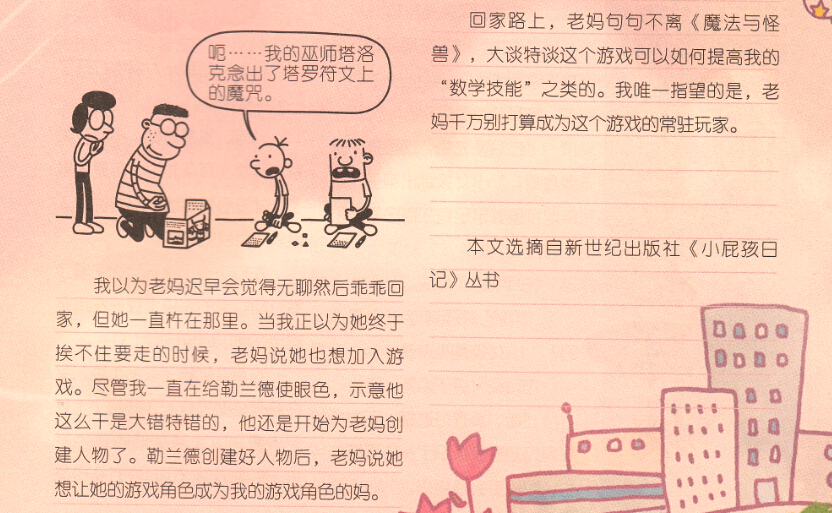 呃……我的巫师塔洛
克念出了塔罗符文上
的魔咒。
我以为老妈迟早会觉得无聊然后乖乖回
家，但她一直杵在那里。当我正以为她终于
挨不住要走的时候，老妈说她也想加入游
戏。尽管我一直在给勒兰德使眼色，示意他
这么干是大错特错的，他还是开始为老妈创
建人物了。勒兰德创建好人物后，老妈说她
想让她的游戏角色成为我的游戏角色的妈。
回家路上，老妈句句不离《魔法与怪
兽》，大谈特谈这个游戏可以如何提高我的
“数学技能”之类的。我唯一指望的是，老
妈千万别打算成为这个游戏的常驻玩家。
本文选摘自新世纪出版社《小屁孩日
记》丛书